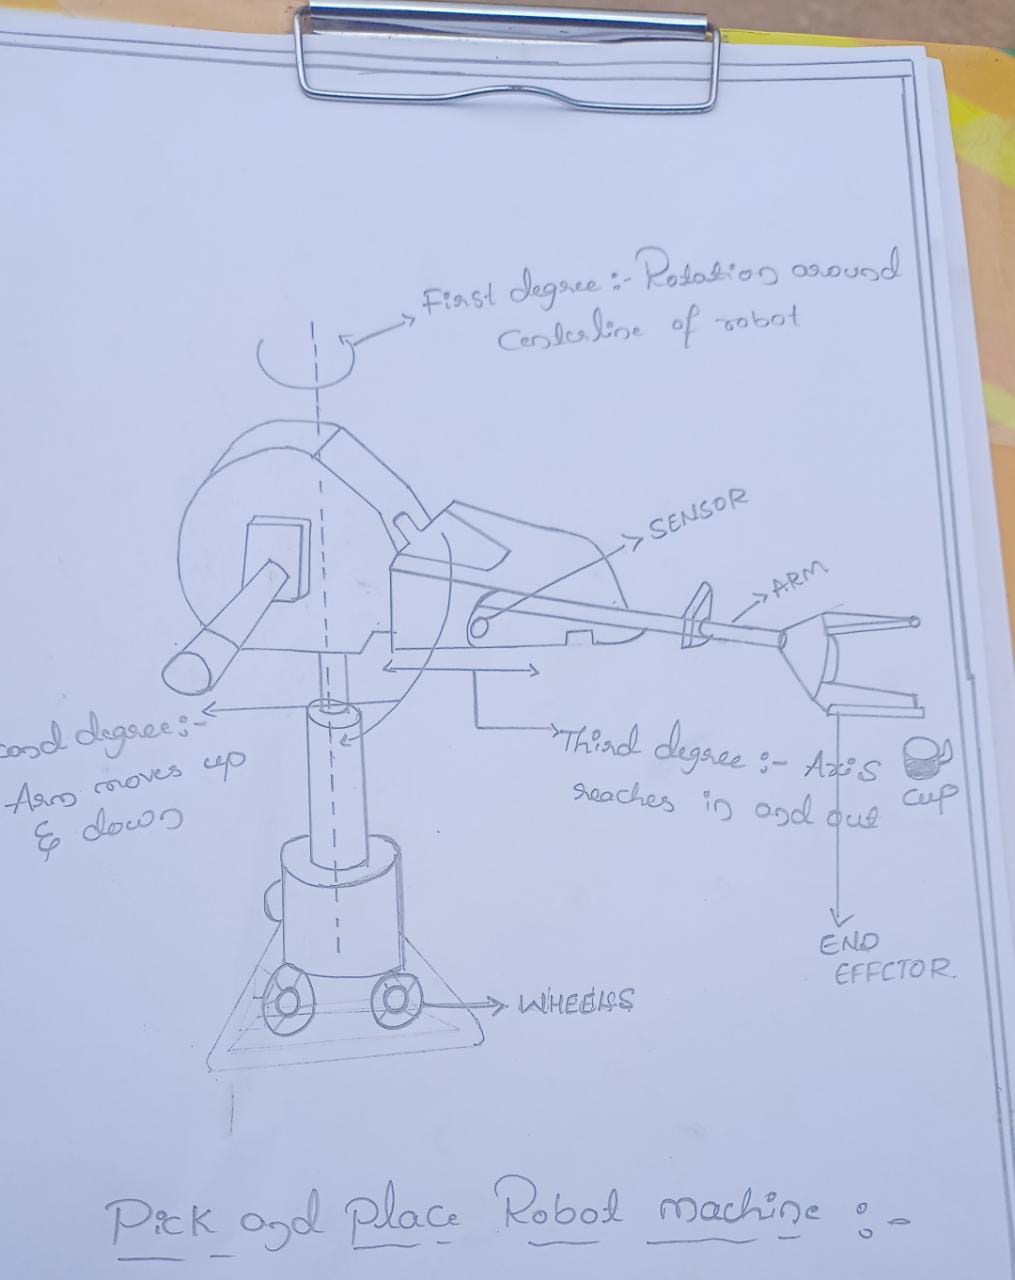 First degree :- Rotation around
Centerline of robot
SENSOR
ARM
cond degree :-
Arm moves up
& down
Third degree :- Axis
reaches in and out
cup
END
EFFCTOR.
WHEELS
Pick and Place Robot machine :-